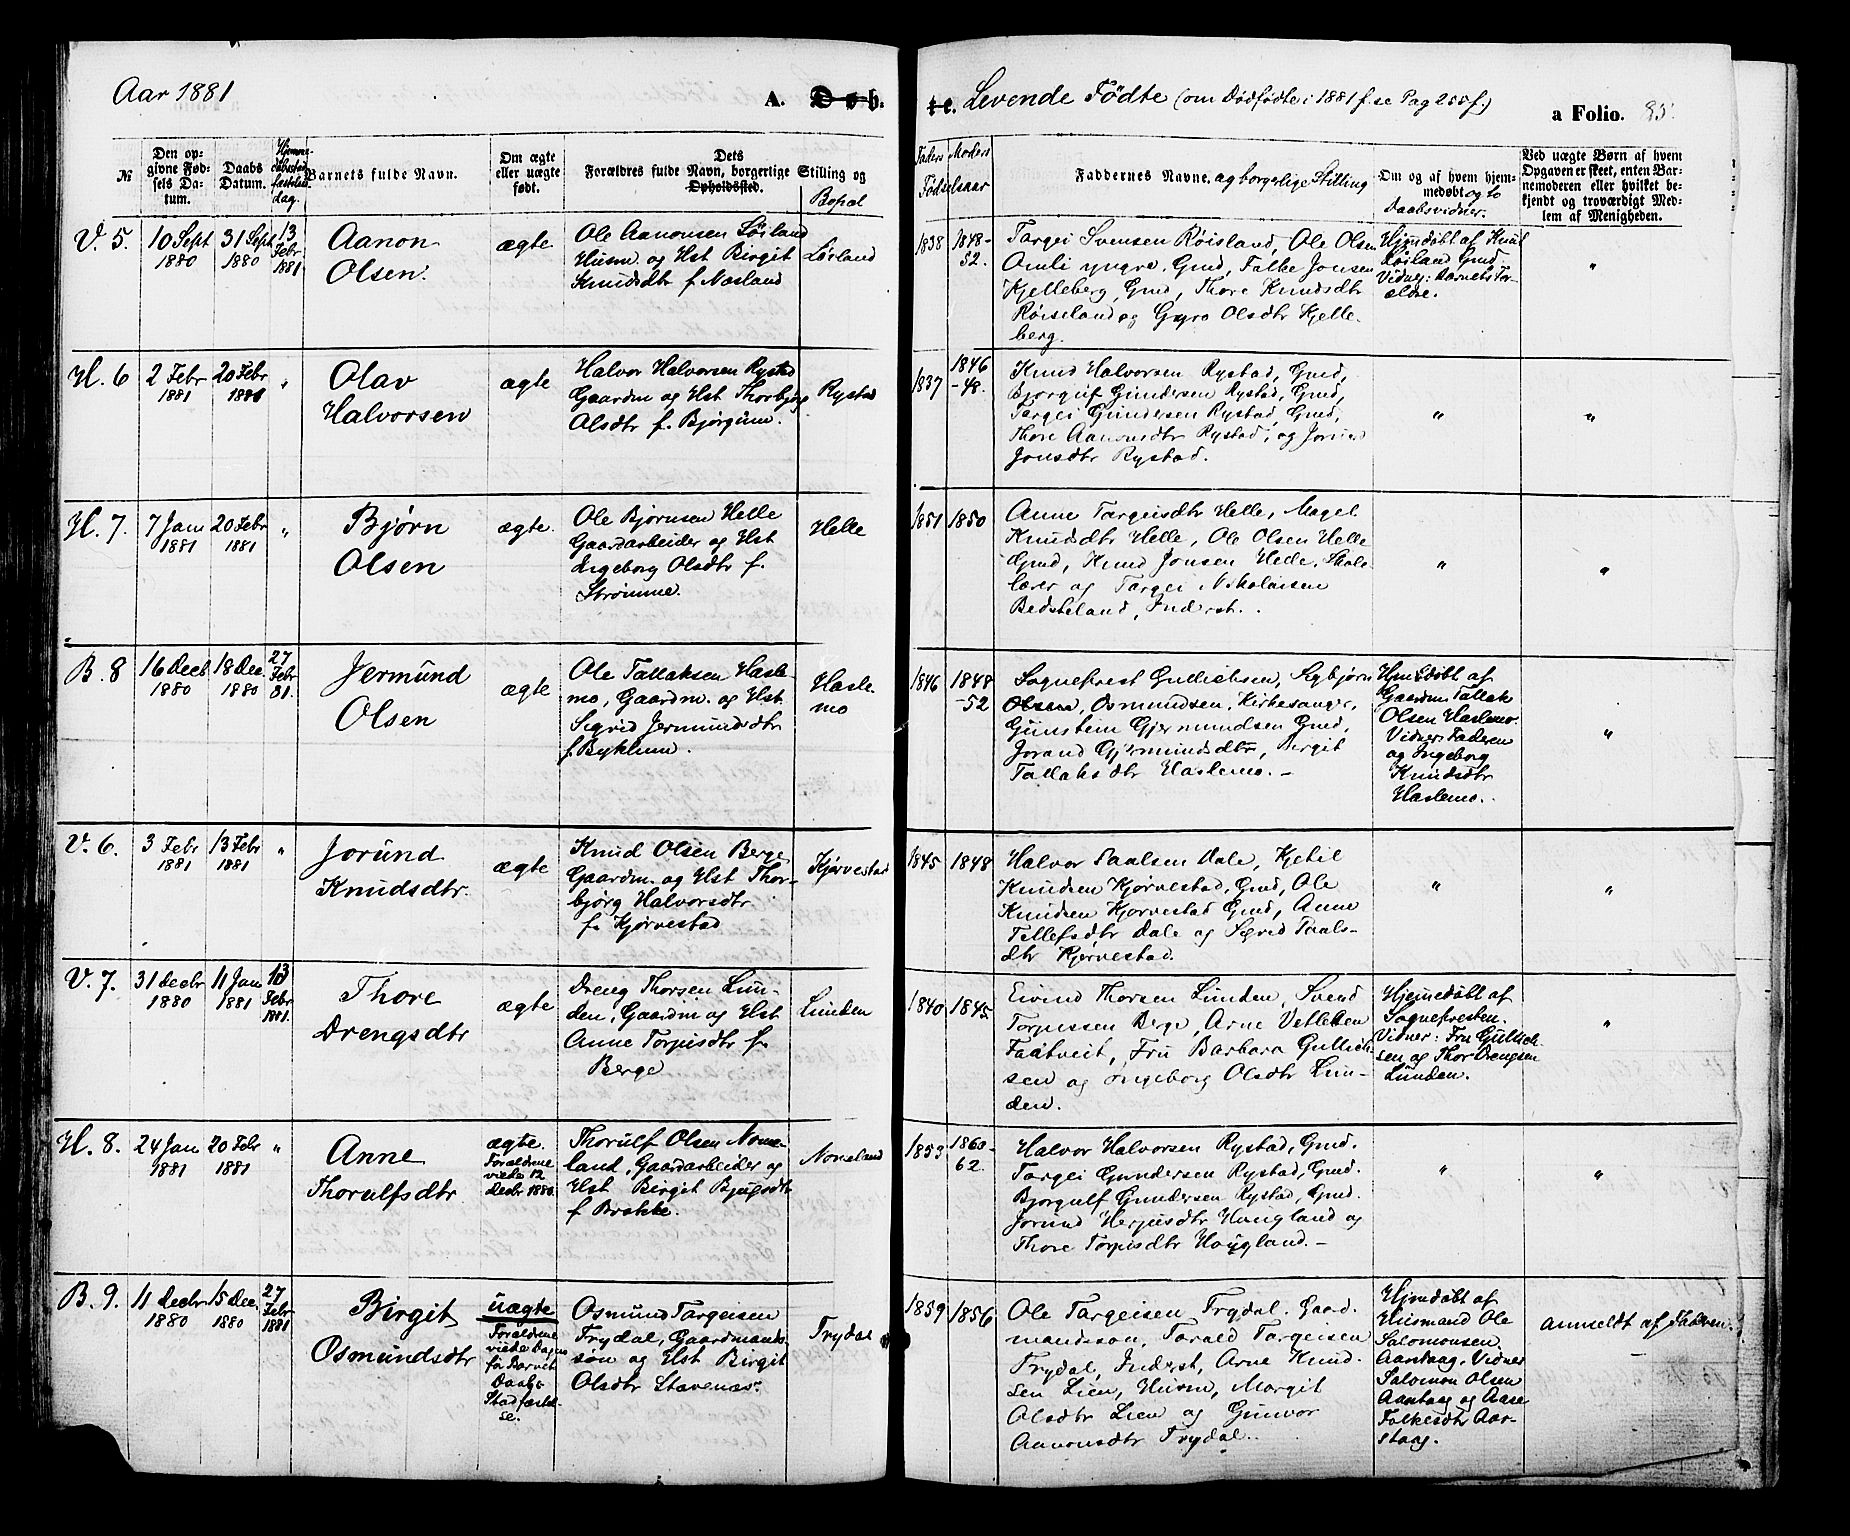 Aar 1881
A. Døb.
te. Levende Fødte (om Dødfødte i 1881 f. se Pag 255 f.)
a Folio. 35.
№
Den opgivne Fødsels Datum.
Daabs Datum.
Barnets fulde Navn.
Om ægte eller uægte født.
Forældres fulde Navn, borgerlige Stilling og
Dets Opholdssted.
Bopæl
Faders Moders
Fødselsaar
Faddernes Navne, og borgerlige Stilling
Om og af hvem hjemmedøbt og to Daabsvidner.
Ved uægte Børn af hvem Opgaven er skeet, enten Barnemoderen eller hvilket bekjendt og troværdigt Medlem af Menigheden.
V. 5.
10 Sept 1880
31 Sept 1880
13 Febr 1881
Aanon
Olsen.
ægte
Ole Aanonsen Løiland
Husm og Hst Birgit
Knudsdtr f. Næsland
Løvland
1838
1848-52.
Targei Svensen Røisland, Ole Olsen
Omli yngre, Gmd, Falke Jonsen
Kjelleberg, Gmd, Thore Knudsdtr
Røiseland og Gyro Olsdtr Kjelle-
berg.
Hjemdøbt af Knut
Røisland Gmd.
Vidner: Barnets For-
ældre.
"
H. 6
2 Febr 1881
20 Febr 1881
"
Olav
Halvorsen
ægte
Halvor Halvorsen Rystad
Gaardm og Hst Thorbjør
Olsdtr f. Bjørgum.
Rystad
1837
1846-48.
Knud Halvorsen Rystad, Gmd,
Bjorguf Gundersen Rystad, Gmd,
Targei Gundersen Rystad, Gmd,
Thore Aanonsdtr Rystad, og Jorund
Jonsdtr Rystad.
"
"
H. 7.
7 Jan 1881
20 Febr 1881
"
Bjørn
Olsen
ægte.
Ole Bjørnsen Helle
Gaardarbeider og Hst
Ingeborg Olsdtr f.
Strømme.
Helle
1851
1850
Anne Targeisdtr Helle, Magel
Knudsdtr Helle, Ole Olsen Helle
Gmd, Knud Jonsen Helle, Skole
lærer og Targei Nikolaisen
Bedsteland, Inderst.
"
"
B. 8
16 Decb 1880
18 Dec. 1880
27 Febr 81.
Jermund
Olsen
ægte
Ole Tallaksen Hasle-
mo, Gaardm. og Hst
Sigrid Jermundsdtr
f. Byklum.
Hasle-
mo
1846
1848-52
Sognefrest Gullichsen, Sigbjørn
Olsen, Osmundsen, Kirkesanger,
Gunstein Gjermundsen Gmd,
Jorand Gjermundsdtr, Birgit
Tallaksdtr Haslemo. -
Hjemdøbt af
Gaardm Tallak
Olsen Haslemo.
Vidner: Faderen
og Ingeborg
Knudsdtr
Haslemo.
"
V. 6.
3 Febr 1881
13 Febr 1881
"
Jorund
Knudsdtr.
ægte
Knud Olsen Berge
Gaardm. og Hst Thor-
bjørg Halvorsdtr
f. Kjørvestad
Kjørvestad
1845
1848
Halvor Paalsen Dale, Kjetil
Knudsen Kjørvestad, Gmd, Ole
Knudsen Kjorvestad Gmd, Anne
Tellefsdtr Dale og Sigrid Paals-
dtr Kjørvestad.
"
"
V. 7.
31 Decbr 1880
11 Jan 1881
13 Febr 1881.
Thore
Drengsdtr
ægte
Dreng Thorsen Lun-
den, Gaardm og Hst
Anne Torpisdtr f.
Berge
Lunden
1840
1845
Eivind Thorsen Lunden, Svend
Torpissen Berge, Arne Vetlesen
Faatveit, Fru Barbara Gullich
sen og Ingeborg Olsdtr Lun-
den.
Hjemdøbt af
Sognefresten.
Vidner: Fru Gullich-
sen og Thor Drengsen
Lunden.
"
H. 8.
24 Jan 1881
20 Febr 1881
"
Anne
Thorulfsdtr
ægte.
Forældrene
viede 12
Decbr 1880.
Thorulf Olsen Nome-
land, Gaardarbeider og
Hst Birgit Bjugsdtr
f Brokke.
Nomeland
1853
1860-62.
Halvor Halvorsen Rystad, Gmd.
Targei Gundersen Rystad, Gmd.
Bjorgulf Gundersen Rystad, Gmd.
Jorund Herjusdtr Haugland og
Thore Torpisdtr Haugland. -
"
"
B. 9.
11 Decbr 1880
15 Dec. 1880
27 Febr 1881
Birgit
Osmundsdtr
uægte
Forældrene
viede Dagen
før Barnets
Daabs
Stadfæstel-
se.
Osmund Targeisen
Trydal, Gaardmands
søn og Hst Birgit
Olsdtr Stavenæs.
Trydal
1859
1856
Ole Targeisen Trydal, Gaard-
mandssøn, Tarald Targeisen
Trydal, Inderst, Arne Knud-
sen Lien, Husm, Margit
Olsdtr Lien og Gunvor
Aanonsdtr Trydal.
Hjemdøbt af
Husmand Ole
Salomonsen.
Aarstaag. Vidner
Salomon Olsen
Aarstaag og Aase
Falkesdtr Aar-
staag.
Anmeldt af Faderen.